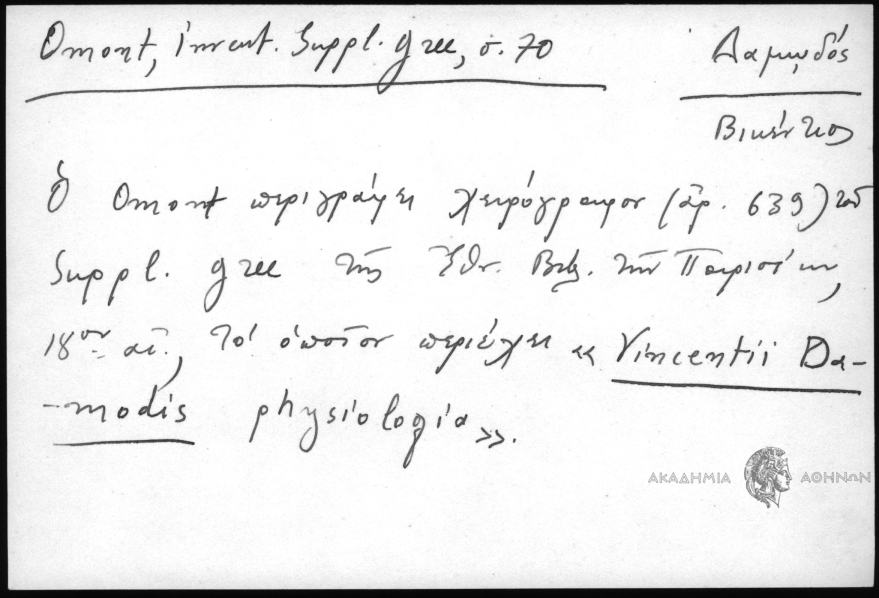 Omont, Invent. Suppl. grec, σ. 70
Δαμωδός
Βικέντιος
Ὁ Omont περιγράφει χειρόγραφον (ἀρ. 639) τοῦ
Suppl. grec τῆς Ἐθν. Βιβ. τῶν Παρισίων,
18ου αἰ., τὸ ὁποῖον περιέχει «Vincentii Da-
-modis physiologia».
ΑΚΑΔΗΜΙΑ ΑΘΗΝΩΝ